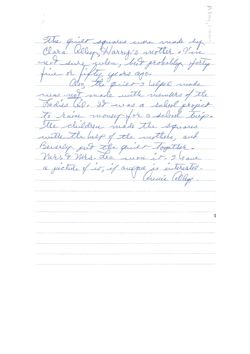 The quilt squares were made by
Clara Alley, Harry's mother. I'm
not sure when, but probably forty
five or fifty years ago.
Also, the quilt I helped make
was not made with members of the
Ladies Aid. It was a school project
to raise money for a school trip.
The children made the squares
with the help of the mothers, and
Beverly put the quilt together.
Mr. & Mrs. Lee won it. I have
a picture of it, if anyone is interested.
Annie Alley